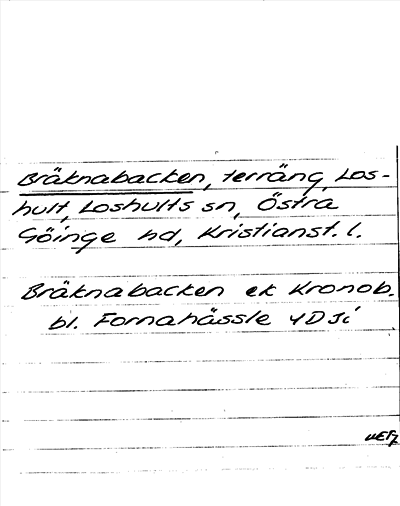 Bräknabacken, terräng, Los-
hult, Loshults sn, Östra
Göinge hd, Kristianst. l.
Bräknabacken ek Kronob.
bl. Fornahässle 4D Ji